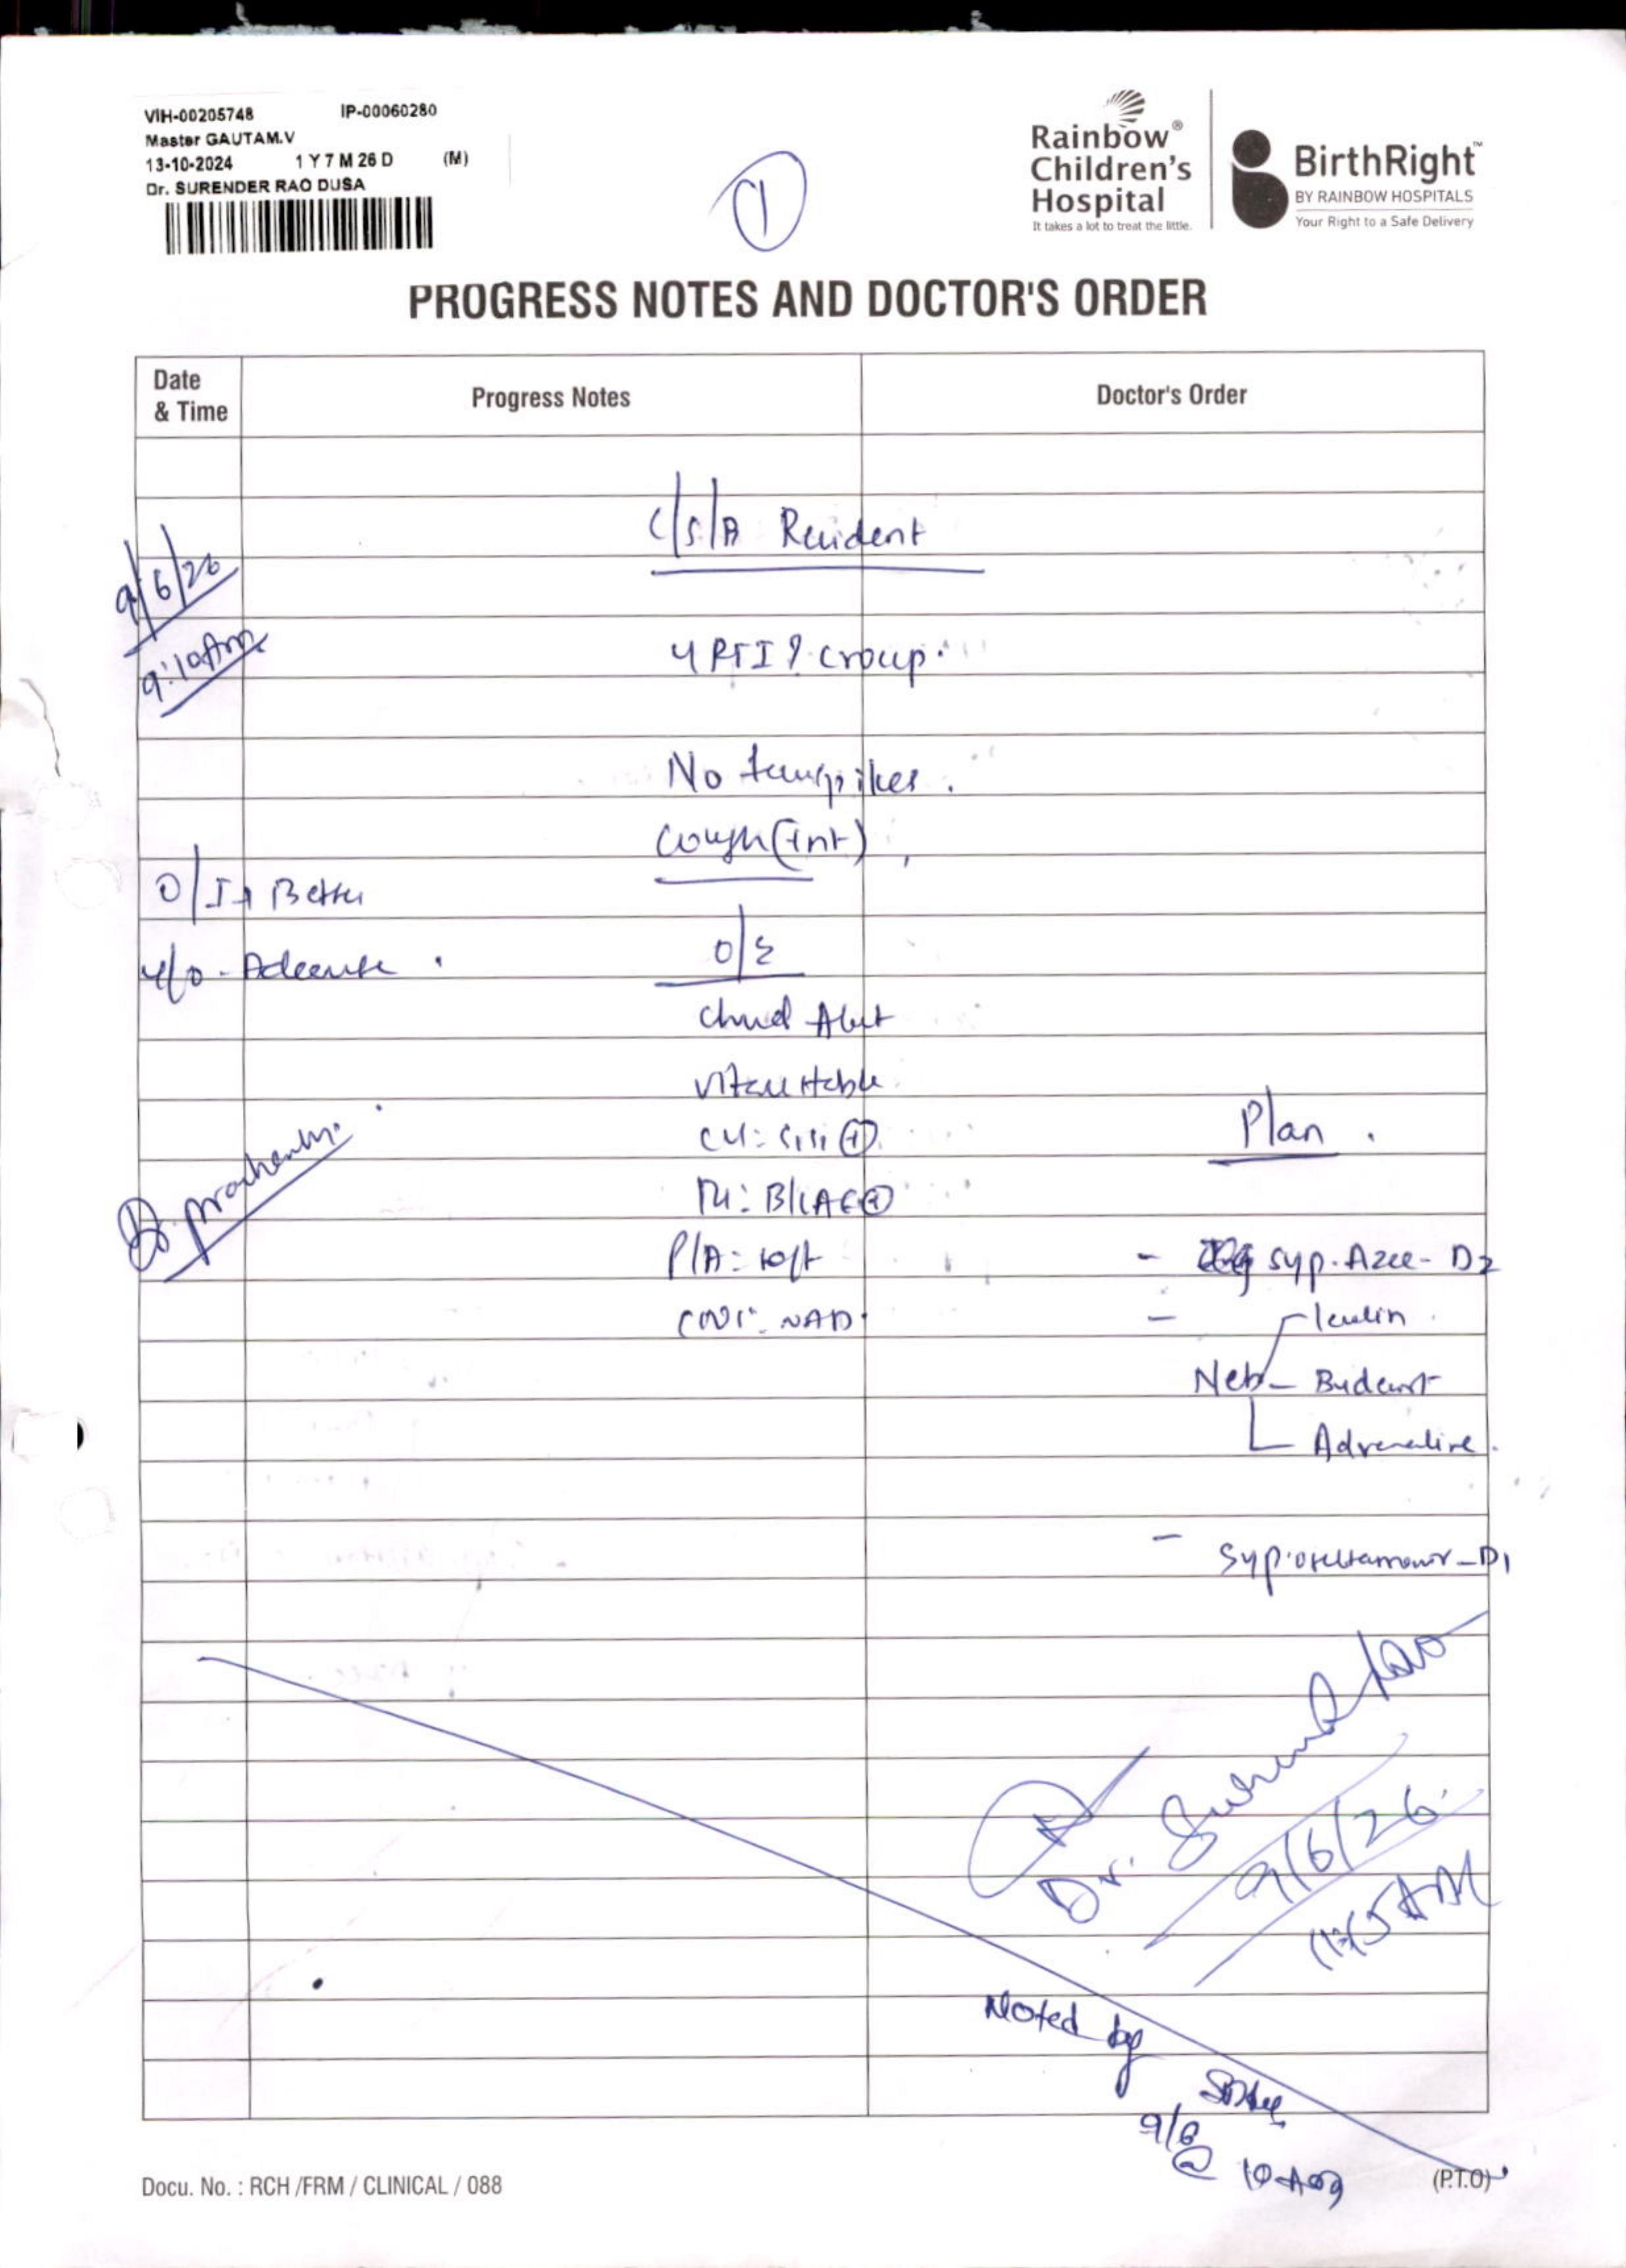 VIH-00205748 IP-00060280
Master GAUTAM.V
13-10-2024 1 Y 7 M 26 D (M)
Dr. SURENDER RAO DUSA
1
Rainbow®
Children's
Hospital
It takes a lot to treat the little.
BirthRight™
BY RAINBOW HOSPITALS
Your Right to a Safe Delivery
PROGRESS NOTES AND DOCTOR'S ORDER
Date & Time
Progress Notes
Doctor's Order
C/S/B Resident
9/6/26
9:10Am
URTI ? croup.
No
Cough (Int)
O/I → Better
U/O - Adequate.
O/E
Child Alert
Vitals stable
CVS: S1S2 ⊕
RS: B/L AE⊕
P/A: soft
CNS: NAD
Plan.
- Syp. Azee - D2
- Neb
Levolin
Budecort
Adrenaline.
- Syp. Oseltamivir - D1
Dr. Surender Rao
9/6/26
Noted by
9/6
@ 10
Docu. No. : RCH /FRM / CLINICAL / 088
(P.T.O)